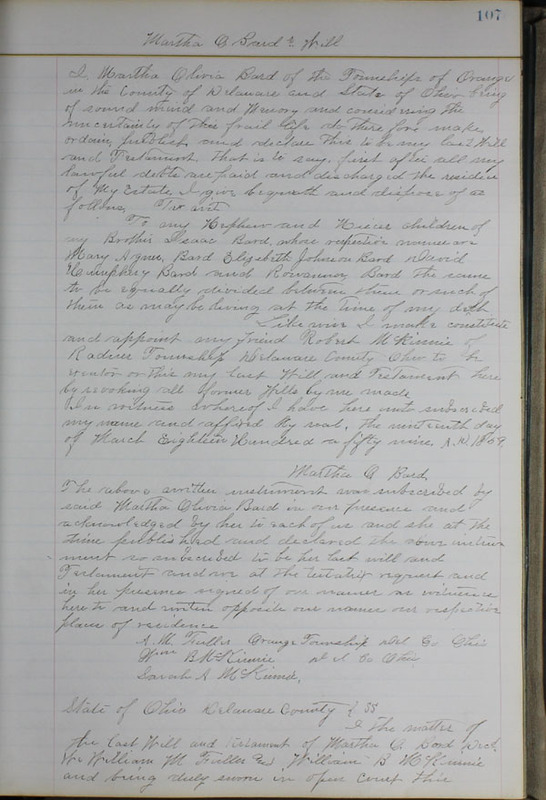 107
Martha O Bard's Will
I, Martha Olivia Bard of the Townships of Orange
in the County of Delaware and State of Ohio being
of sound mind and Memory and considering the
uncertainty of this frail life do therefore make
ordain, publish and declare this to be my last Will
and Testament, that is to say, first after all my
lawful debts are paid and discharged the residue
of My Estate, I give bequeath and dispose of as
follows, To wit
To my Nephew and Nieces children of
my Brother Isaac Bard, whose respective names are
Mary Agnes, Bard Elizabeth Johnson Bard David
Humphrey Bard and Bard the same
to be equally divided between them or such of
them as may be living at the time of my deth
Likewise I make constitute
and appoint my friend Robert McKinnie of
Radnor Township Delaware County Ohio to be
of this my last Will and Testament here
by revoking all former Wills by me made
In witness Whereof I have here unto subscribed
my name and affixed my seal, the ninteenth day
of March Eighteen Hundred & fifty nine, A.D. 1859
Martha O Bard
The above written instrument was subscribed by
said Martha Olivia Bard in our presence and
acknowledged by her to each of us and she at the
time published and declared the above instru
ment so subscribed to be her last will and
Testament and we at the testatrix request and
in her presence signed of our names as witnesses
hereto and written opposite our names our respective
places of residence
A. M. Fuller Orange Township Del Co Ohio
Wm B McKinnie Del Co Ohio
Sarah A McKinnie,
State of Ohio Delaware County } SS
I the matter of
the Last Will and testament of Martha O. Bard Decd.
We William M Fuller William B McKinnie
and being duly sworn in open court this